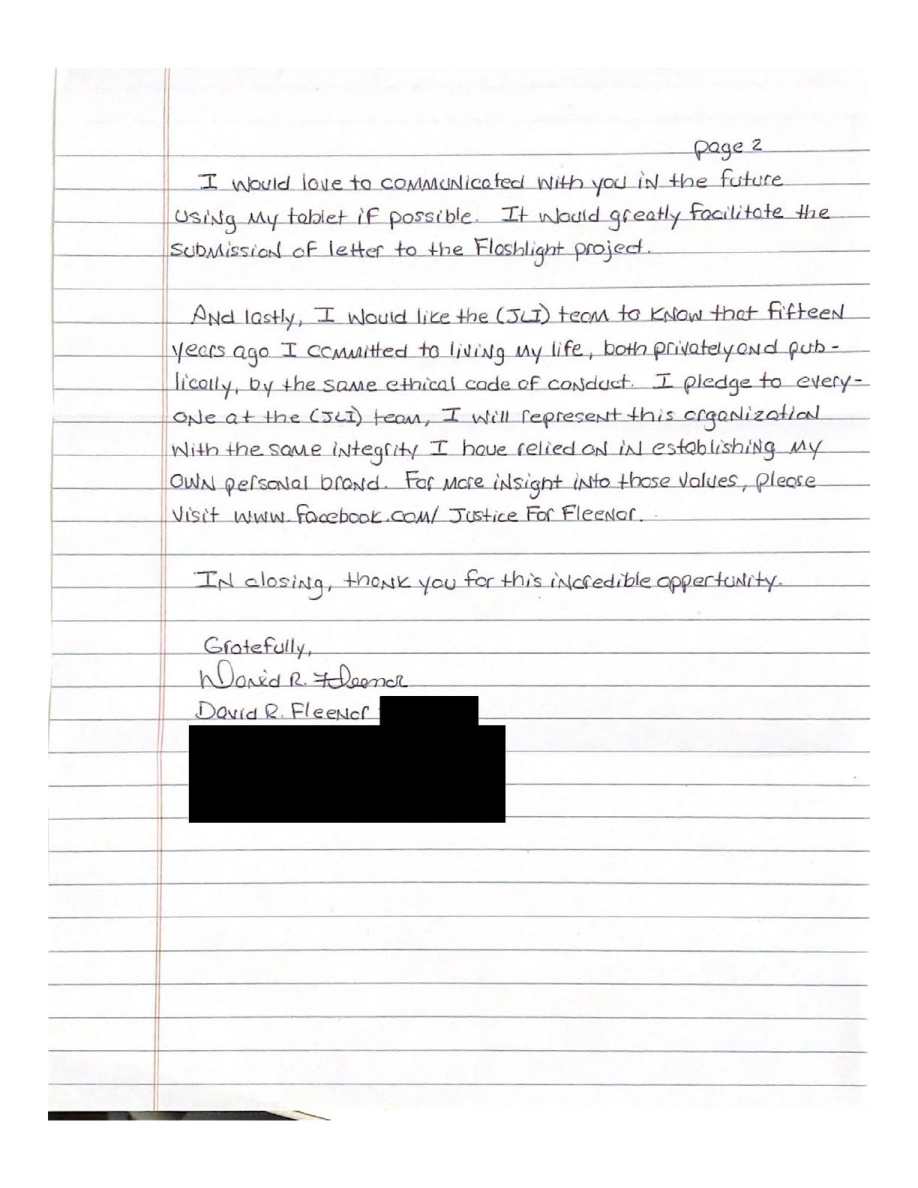 page 2
I would love to communicated with you in the future
using my tablet if possible. It would greatly facilitate the
submission of letter to the Flashlight project.
And lastly, I would like the (JLI) team to know that fifteen
years ago I committed to living my life, both privately and pub-
lically, by the same ethical code of conduct. I pledge to every-
one at the (JLI) team, I will represent this organization
with the same integrity I have relied on in establishing my
own personal brand. For more insight into those values, please
visit www.facebook.com/ Justice For Fleenor.
In closing, thank you for this incredible oppertunity.
Gratefully,
David R. Fleenor
David R. Fleenor